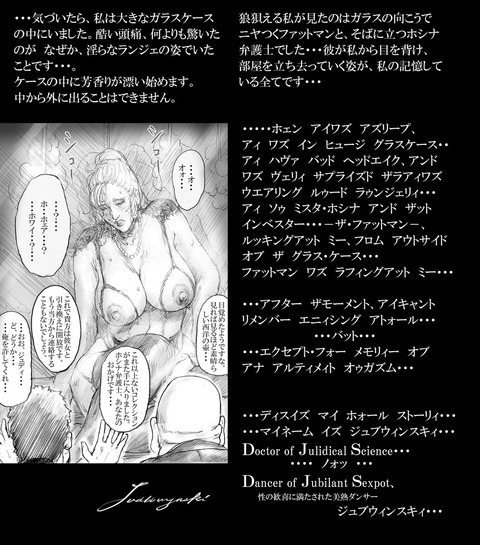 ・・・気づいたら、私は大きなガラスケース
の中にいました。酷い頭痛、何よりも驚いた
のが　なぜか、淫らなランジェの姿でいた
ことです・・・。
ケースの中に芳香りが漂い始めます。
中から外に出ることはできません。
狼狽える私が見たのはガラスの向こうで
ニヤつくファットマンと、そばに立つホシナ
弁護士でした・・・彼が私から目を背け、
部屋を立ち去っていく姿が、私の記憶して
いる全てです・・・
・・・・・ホェン　アイワズ　アズリープ、
アィ　ワズ　イン　ヒュージ　グラスケース・・
アィ　ハヴァ　バッド　ヘッドエイク、アンド
ワズ　ヴェリィ　サプライズド　ザラァイワズ
ウエアリング　ルゥード　ラァンジェリィ・・・
アィ　ソゥ　ミスタ・ホシナ　アンド　ザット
インベスター・・・－ザ・ファットマン－、
ルッキングアット　ミー、フロム　アウトサイド
オブ　ザ　グラス・ケース・・・
ファットマン　ワズ　ラフィングアット　ミー・・・
・・・アフター　ザモーメント、アイキャント
リメンバー　エニィシング　アトォール・・・
・・・バット・・・
・・・エクセプト・フォー　メモリィー　オブ
アナ　アルティメイト　オゥガズム・・・
・・・ディスイズ　マイ　ホォール　ストーリィ・・・
・・・マイネーム　イズ　ジュブウィンスキィ・・・
Doctor of Julidical Science・・・
・・・・　ノォッ　・・・
Dancer of Jubilant Sexpot、
性の歓喜に満たされた美熟ダンサー
ジュブウィンスキィ・・・
・・・オ・・
オオ・・・
・・？・・
ホ・ホシナ・・？
ホワイ・・？・・
目覚めたようですな
見れば見るほど素晴ら
しい西洋の壷・・・
これ以上ないコレクション
がまた手に入りました。
ホシナ弁護士、あなたの
おかげです・・・
これで貴方は彼女と
引き換えに開放です。
もう当方から連絡する
こともないでしょう・・・
・・・おお、ジュディ・・・
ど、どうか・・・
俺を許してくれ・・